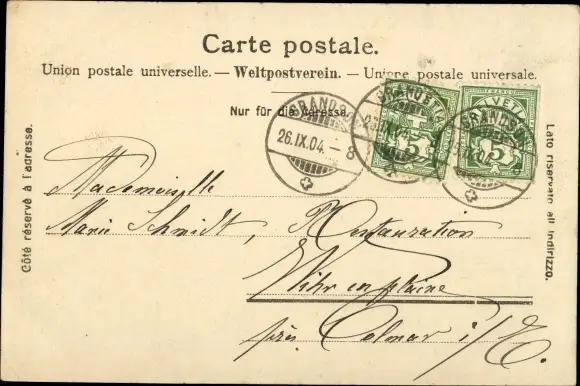 Carte postale.
Union postale universelle. — Weltpostverein. — Unione postale universale.
Nur für die Adresse.
Côté réservé à l'adresse.
Lato riservato all' indirizzo.
GRANDSON
26.IX.04.–8
GRANDSON
26.IX.04
HELVETIA
FRANCO
5
GRANDSON
5
Mademoiselle
Marie Schmidt, Restauration
Wihr en plaine
près Colmar i/E.